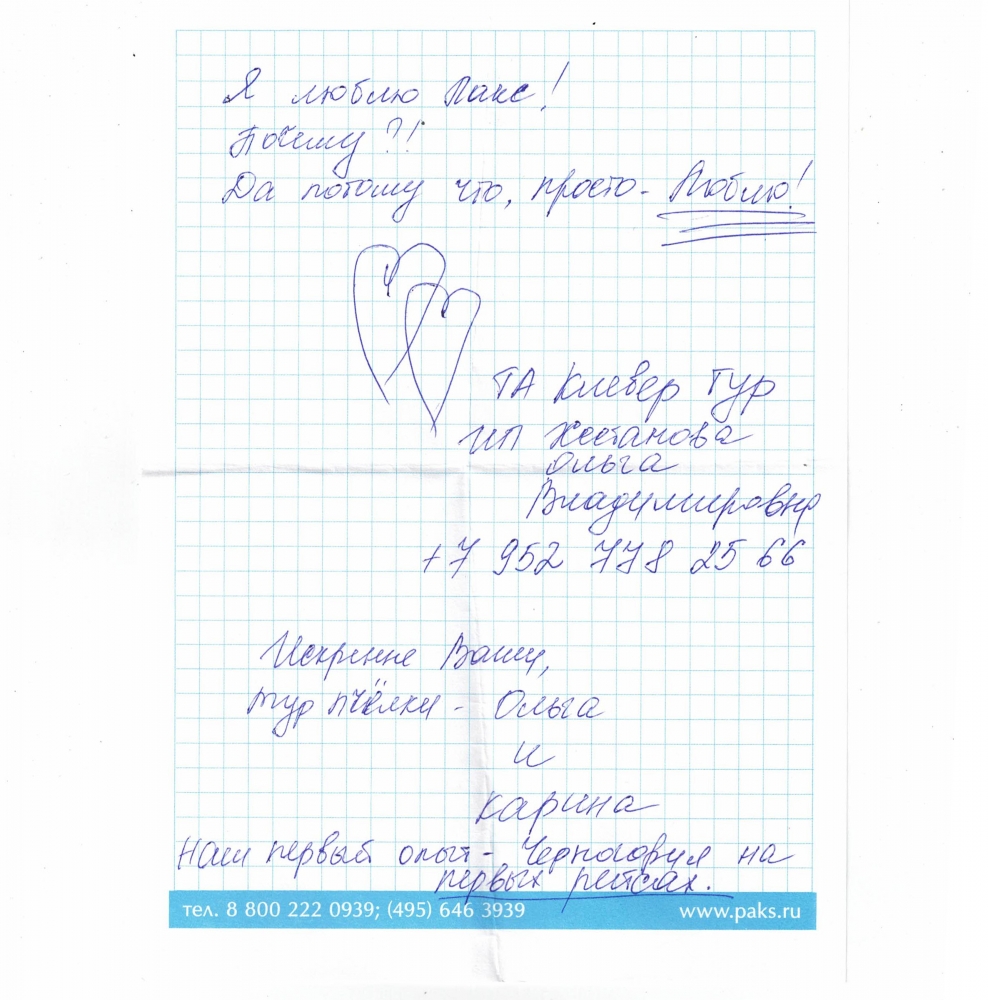 Я люблю Пакс!
Почему?!
Да потому что, просто - Люблю!
ТА Клевер Тур
ИП Хестанова
Ольга
Владимировна
+7 952 778 25 66
Искренне Ваши,
тур пчёлки - Ольга
и
Карина
Наш первый опыт - Черногория на
первых рейсах.
тел. 8 800 222 0939; (495) 646 3939 www.paks.ru